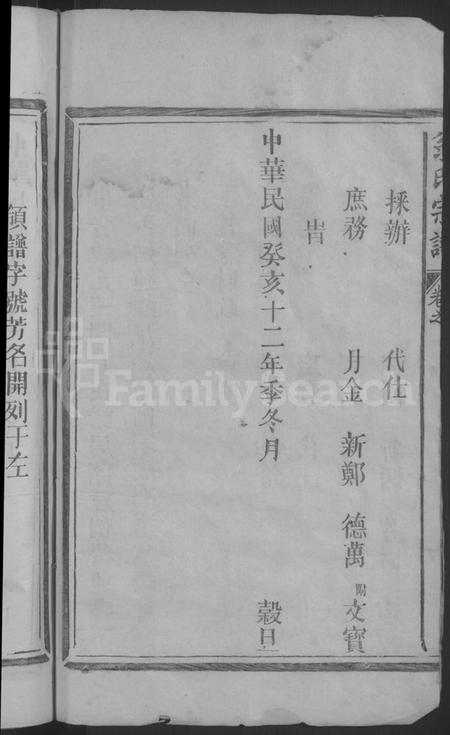 氏宗譜 卷之
採辦 代仕
庶務 月金 新鄭 德萬 附 文寶
旹
中華民國癸亥十二年季冬月 穀旦
領譜字號芳名開列于左
FamilySearch